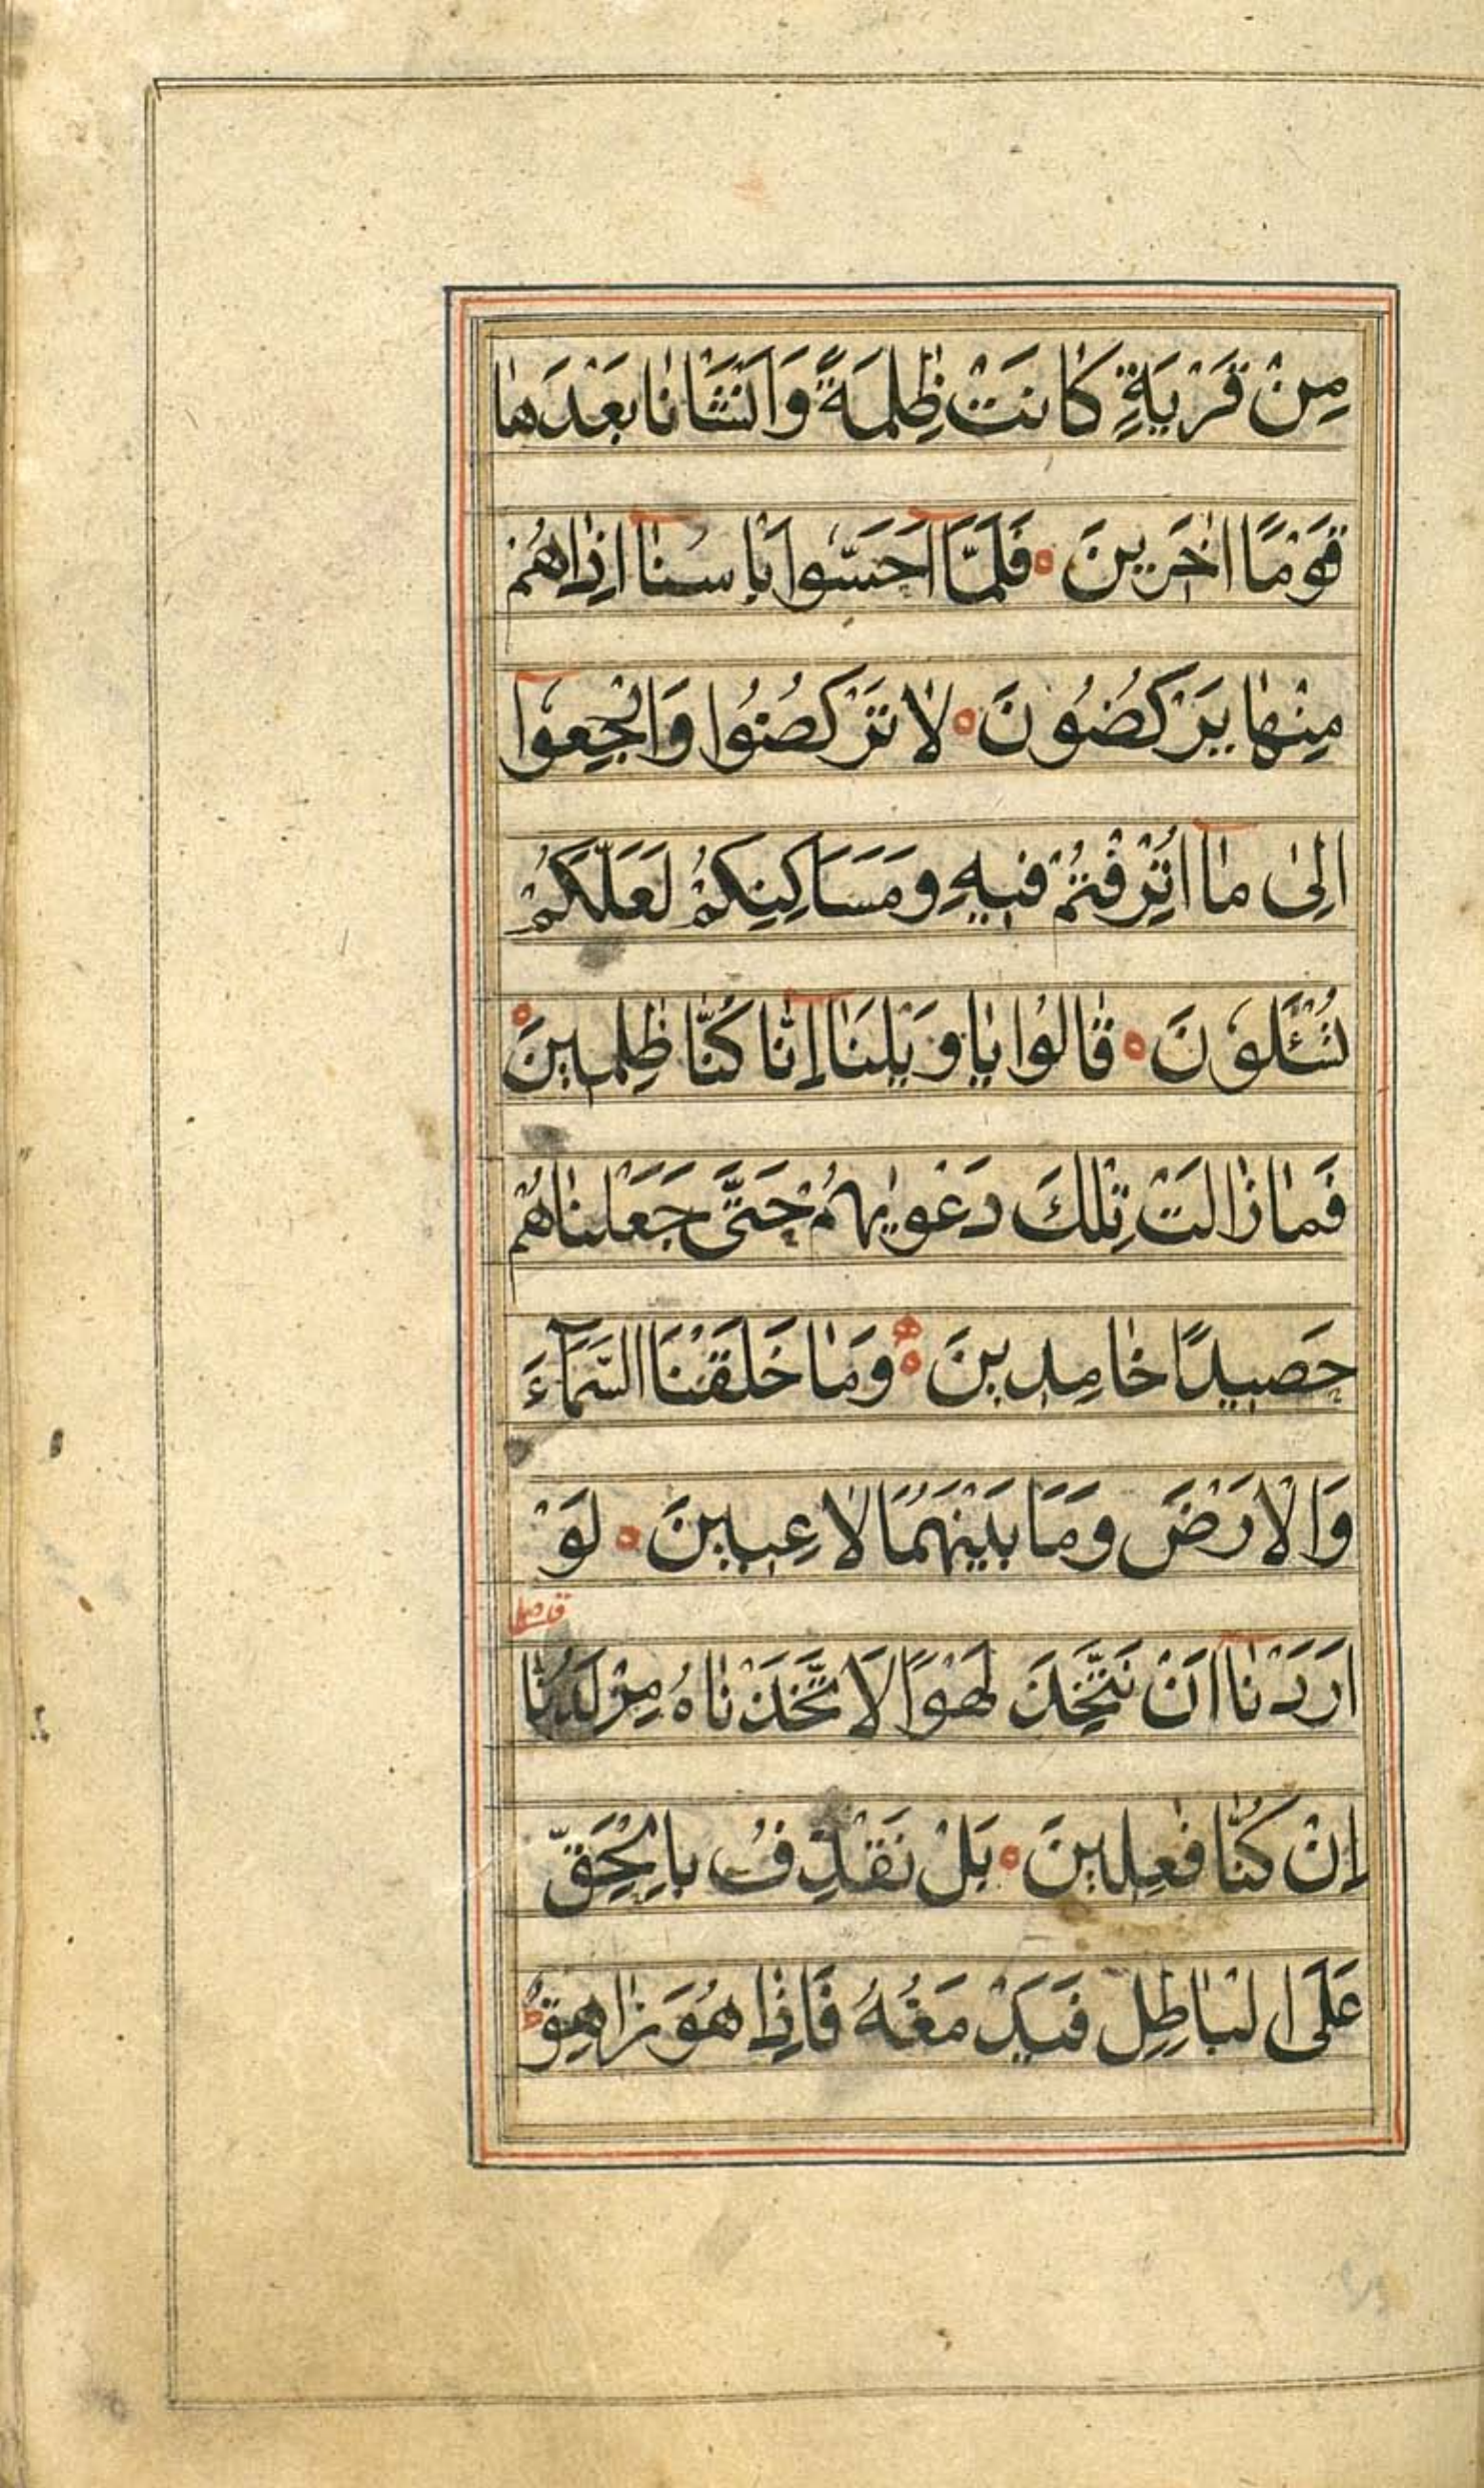 مِنْ قَرْيَةٍ كٰانَتْ ظٰلِمَةً وَاَنْشَأْنٰا بَعْدَهٰا
قَوْمًا اٰخَرِينَ ۝ فَلَمَّا اَحَسُّوا بَأْسَنٰا اِذٰاهُمْ
مِنْهٰا يَرْكُضُونَ ۝ لٰا تَرْكُضُوا وَارْجِعُوا
اِلىٰ مٰا اُتْرِفْتُمْ فِيهِ وَمَسَاكِنِكُمْ لَعَلَّكُمْ
تُسْئَلُونَ ۝ قٰالُوا يٰا وَيْلَنٰا اِنّٰا كُنّٰا ظٰلِمِينَ ۝
فَمٰا زٰالَتْ تِلْكَ دَعْوٰيهُمْ حَتّٰى جَعَلْنٰاهُمْ
حَصِيدًا خٰامِدِينَ ۝ وَمٰا خَلَقْنَا السَّمَآءَ
وَالْاَرْضَ وَمَا بَيْنَهُمَا لٰاعِبِينَ ۝ لَوْ
اَرَدْنٰا اَنْ نَتَّخِذَ لَهْوًا لَاتَّخَذْنٰاهُ مِنْ لَدُنّٰا
اِنْ كُنّٰا فٰعِلِينَ ۝ بَلْ نَقْذِفُ بِالْحَقِّ
عَلَى الْبٰاطِلِ فَيَدْمَغُهُ فَاِذٰا هُوَ زٰاهِقٌ ط